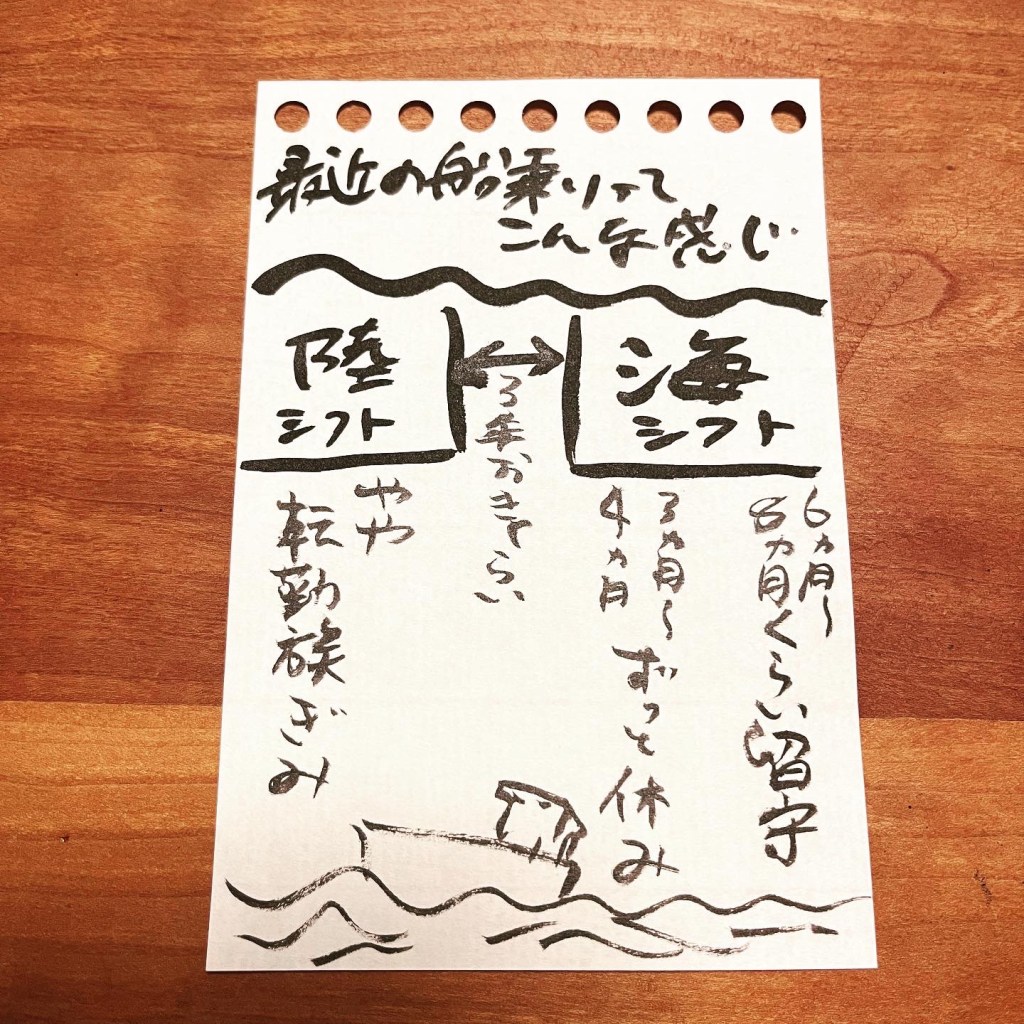 最近の船乗りって
こんな感じ
海
シフト
6ヵ月〜
8ヵ月くらい留守
3ヵ月〜
4ヵ月
ずっと休み
3年おきくらい
陸
シフト
やや
転勤族ぎみ